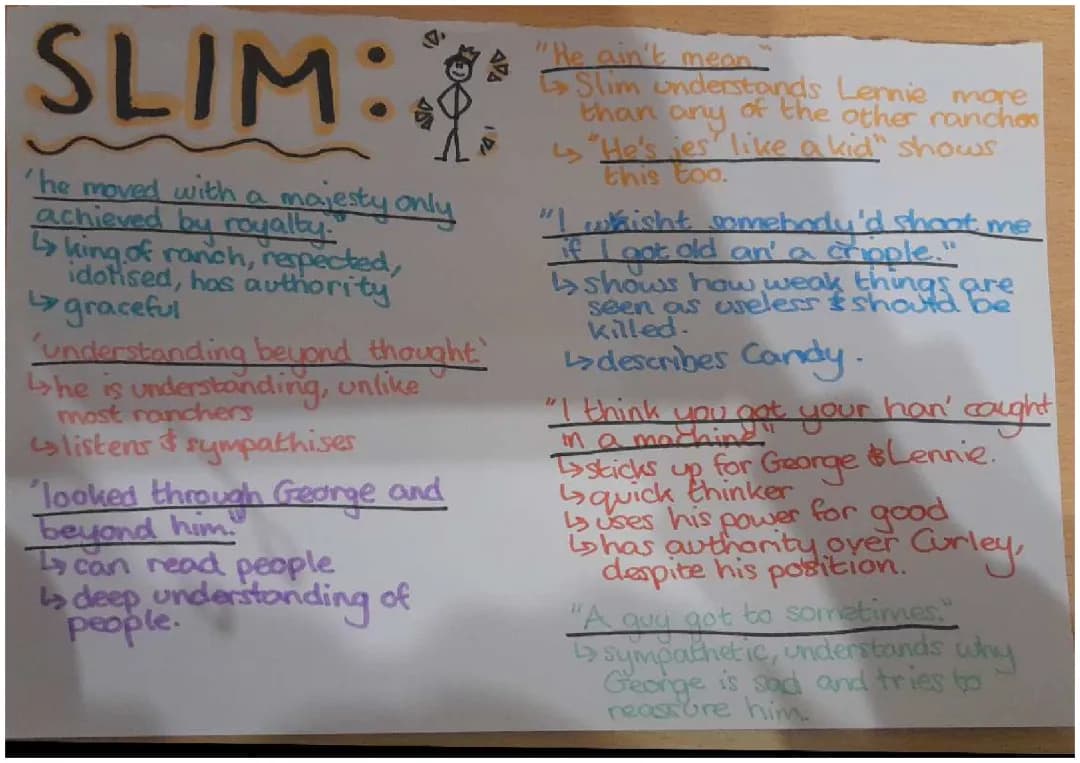 SLIM:
'he moved with a majesty only
achieved by royalty."
↳ king of ranch, respected,
idolised, has authority
↳ graceful
'understanding beyond thought'
↳ he is understanding, unlike
most ranchers
↳ listens & sympathises
'looked through George and
beyond him."
↳ can read people
↳ deep understanding of
people.
"He ain't mean"
↳ Slim understands Lennie more
than any of the other ranchers
↳ "He's jes' like a kid" shows
this too.
"I whisht somebody'd shoot me
if I got old an' a cripple."
↳ shows how weak things are
seen as useless & should be
killed.
↳ describes Candy.
"I think you got your han' caught
in a machine"
↳ sticks up for George & Lennie.
↳ quick thinker
↳ uses his power for good
↳ has authority over Curley,
despite his position.
"A guy got to sometimes."
↳ sympathetic, understands why
George is sad and tries to
reassure him.